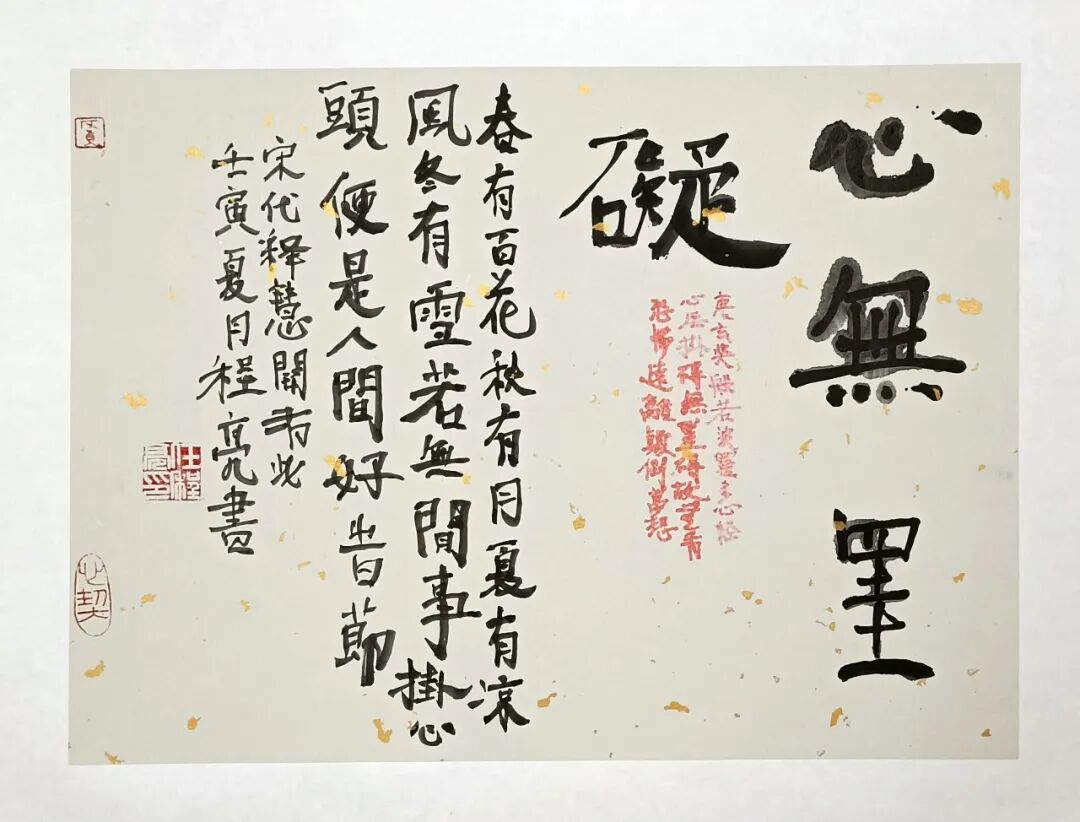 心無罣
礙
唐玄奘般若波羅多心經
心無掛碍無罣碍故無有
恐怖遠離顛倒夢想
春有百花秋有月夏有凉
風冬有雪若無閒事掛心
頭便是人間好时節
宋代释慧開有此
壬寅夏月程亮書
心契